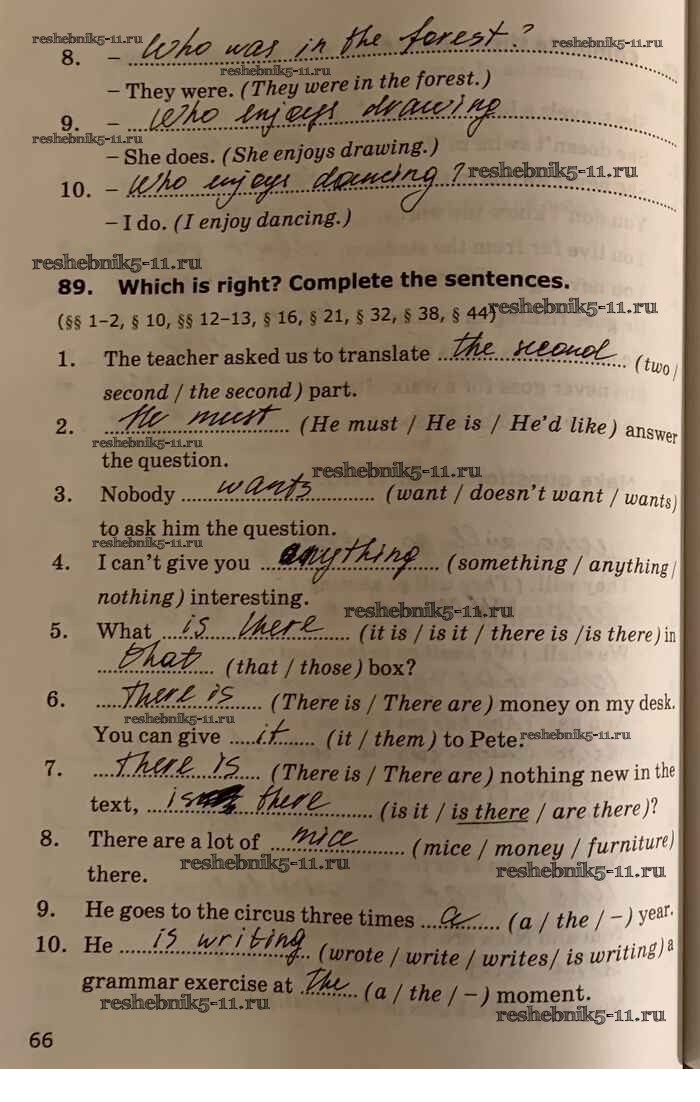 reshebnik5-11.ru
8. – Who was in the forest? reshebnik5-11.ru
reshebnik5-11.ru
– They were. (They were in the forest.)
9. – Who enjoys drawing
reshebnik5-11.ru
– She does. (She enjoys drawing.)
10. – Who enjoys dancing? reshebnik5-11.ru
– I do. (I enjoy dancing.)
reshebnik5-11.ru
89. Which is right? Complete the sentences.
(§§ 1–2, § 10, §§ 12–13, § 16, § 21, § 32, § 38, § 44) reshebnik5-11.ru
1. The teacher asked us to translate the second (two /
second / the second) part.
2. He must (He must / He is / He'd like) answer
reshebnik5-11.ru
the question. reshebnik5-11.ru
3. Nobody wants (want / doesn't want / wants)
to ask him the question.
reshebnik5-11.ru
4. I can't give you anything (something / anything /
nothing) interesting. reshebnik5-11.ru
5. What is there (it is / is it / there is /is there) in
that (that / those) box?
6. There is (There is / There are) money on my desk.
reshebnik5-11.ru
You can give it (it / them) to Pete. reshebnik5-11.ru
7. There is (There is / There are) nothing new in the
text, is there (is it / is there / are there)?
8. There are a lot of mice (mice / money / furniture)
reshebnik5-11.ru
there. reshebnik5-11.ru
9. He goes to the circus three times a (a / the / –) year.
10. He is writing (wrote / write / writes/ is writing) a
grammar exercise at the (a / the / –) moment.
reshebnik5-11.ru reshebnik5-11.ru
66